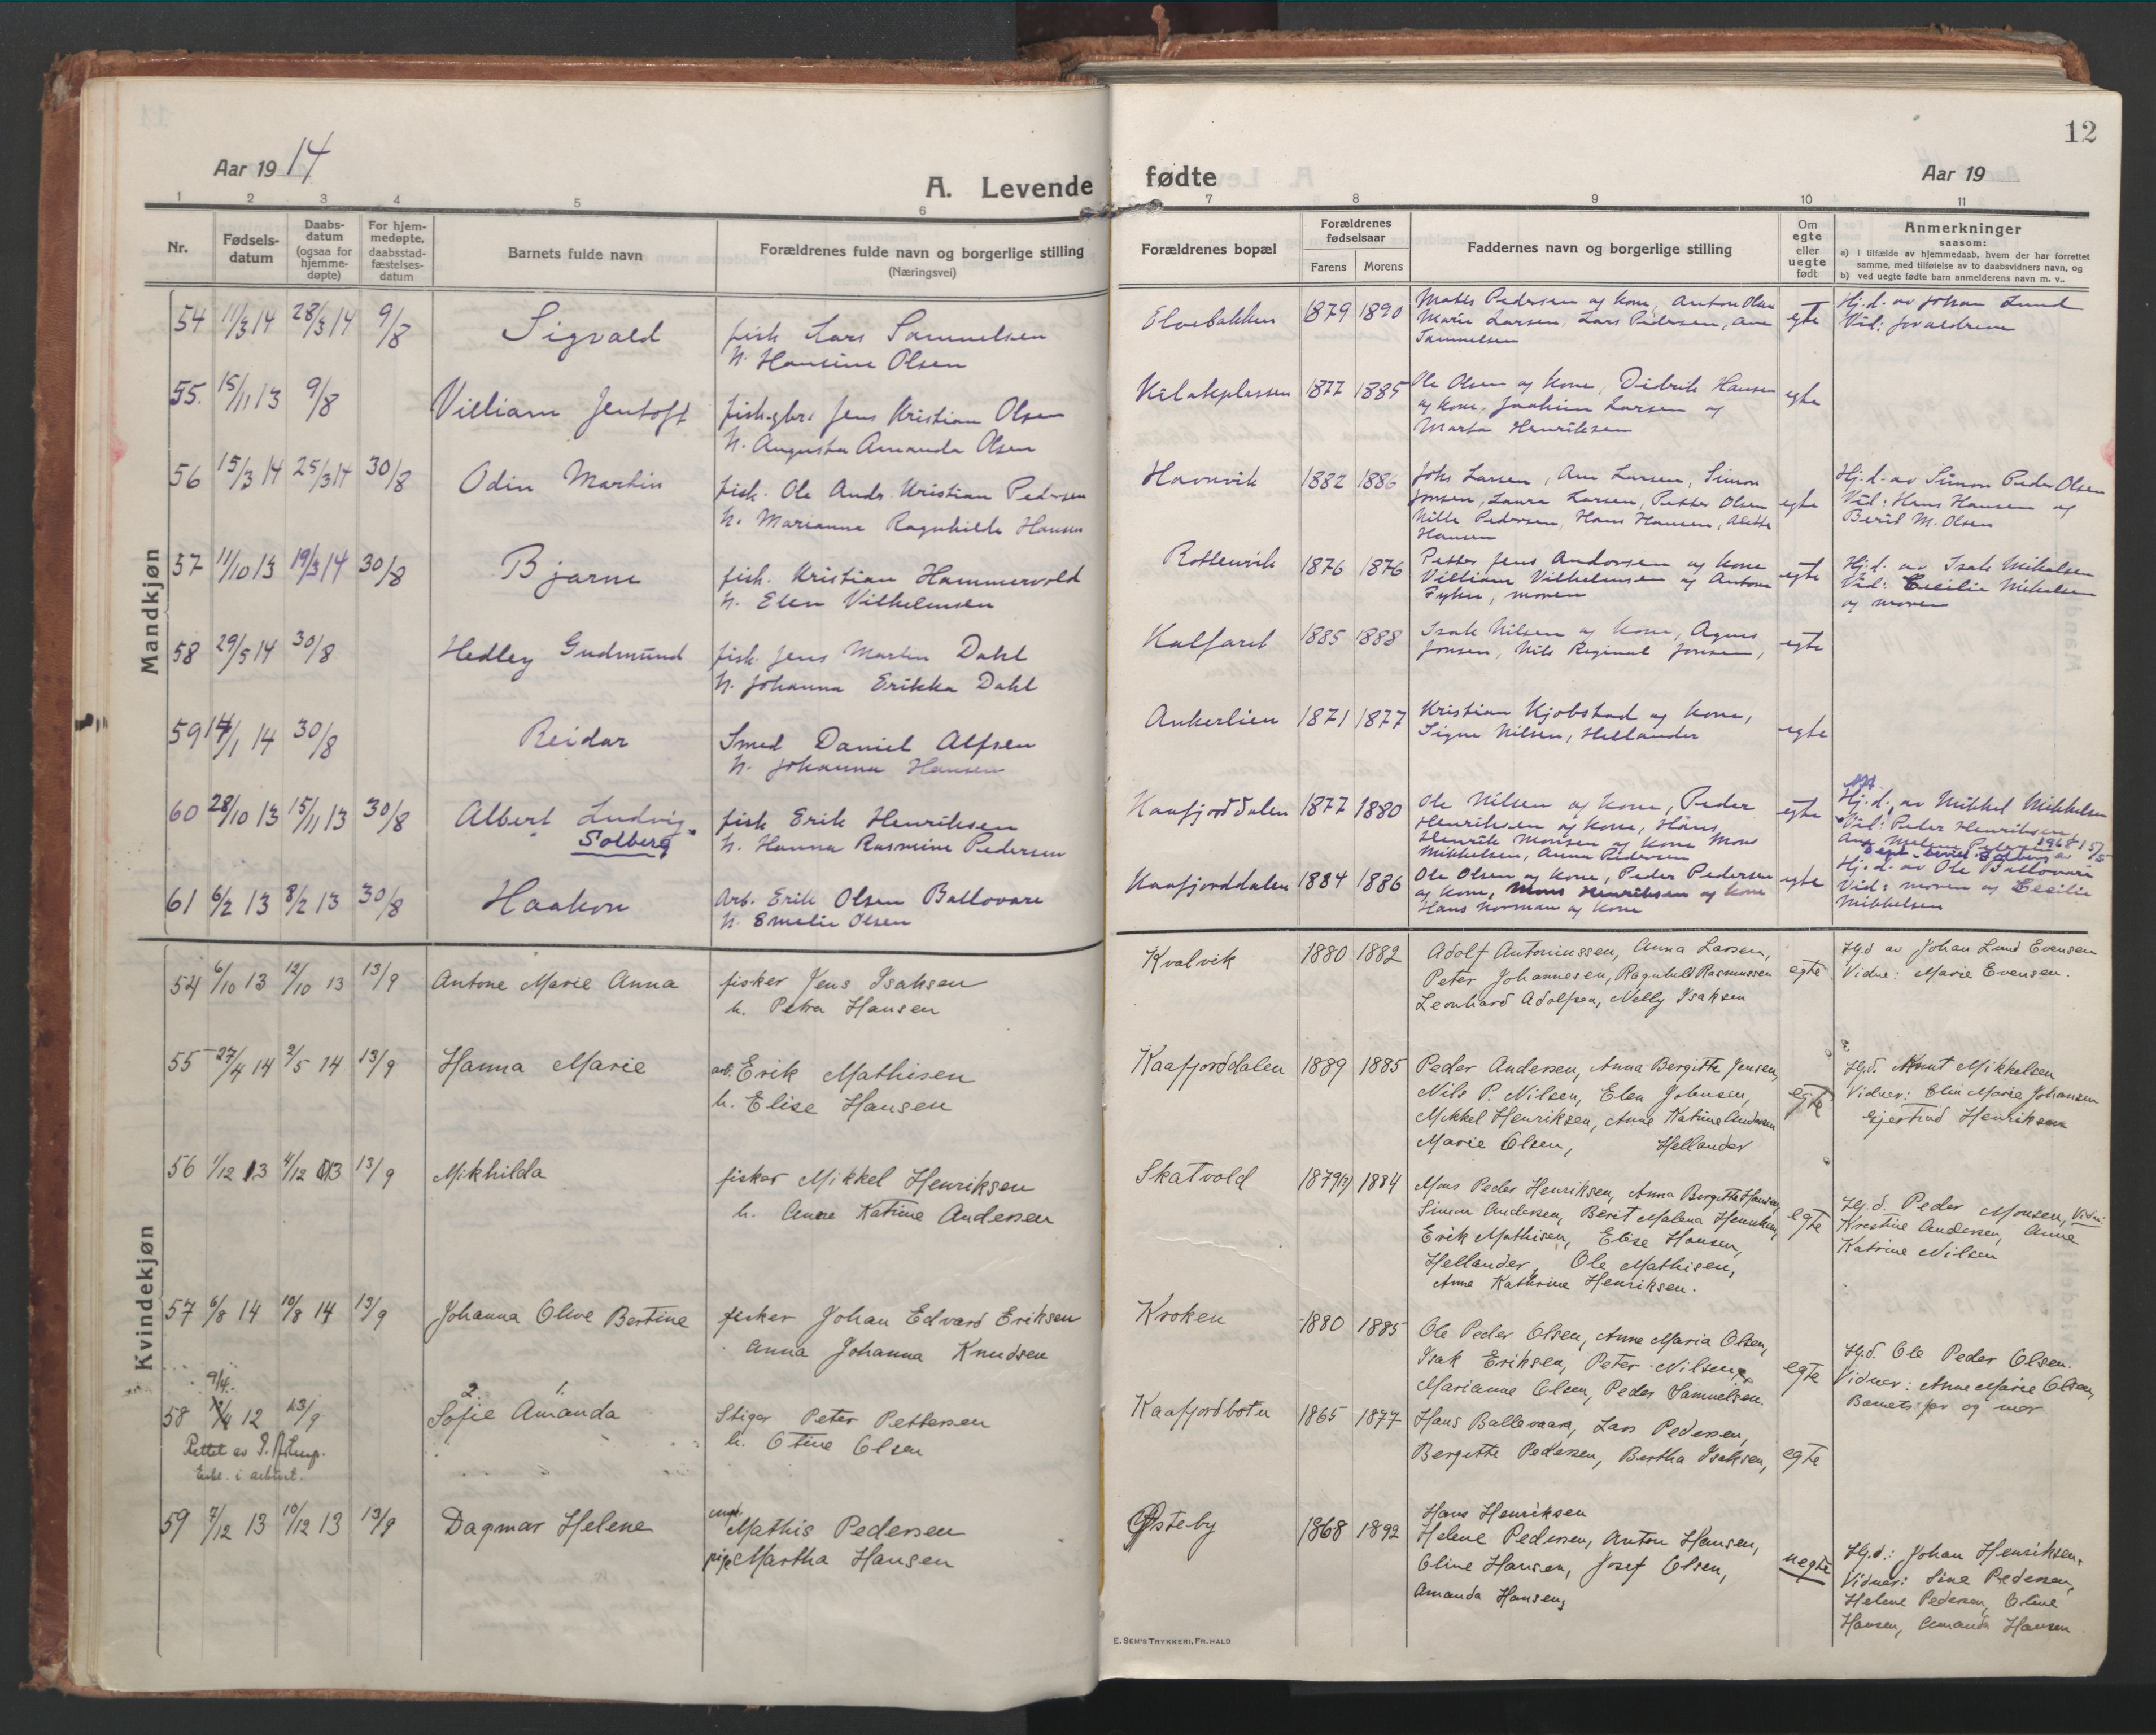 12
Aar 19 14
A. Levende fødte
Aar 19
1 2 3 4 5 6 7 8 9 10 11
Nr.
Fødsels-
datum
Daabs-
datum
(ogsaa for
hjemme-
døpte)
For hjem-
medøpte,
daabsstad-
fæstelses-
datum
Barnets fulde navn
Forældrenes fulde navn og borgerlige stilling
(Næringsvei)
Forældrenes bopæl
Forældrenes
fødselsaar
Farens Morens
Faddernes navn og borgerlige stilling
Om
egte
eller
uegte
født
Anmerkninger
saasom:
a) i tilfælde av hjemmedaab, hvem der har forrettet
samme, med tilføielse av to daabsvidners navn, og
b) ved uegte fødte barn anmelderens navn m. v..
Mandkjøn
54 11/3 14 28/3 14 9/8
Sigvald
fisk Lars Samuelsen
h. Hansine Olsen
Elvebakken 1879 1890
Mathis Pedersen og kone, Anton Olsen
Marie Larsen, Lars Pedersen, Ane
Samuelsen
egte
Hj.d. av Johan Lund
Vid: forældrene
55. 15/11 13 9/8
Villiam Jentoft
fisk.gbr. Jens Kristian Olsen
h. Augusta Amanda Olsen
1877 1885
Ole Olsen og kone, Didrik Hansen
og kone, Joakim Larsen og
Marta Henriksen
egte
56 15/3 14 25/3 14 30/8
Odin Martin
fisk. Ole Andr. Kristian Pedersen
h. Marianna Ragnhilde Hansen
Havnvik 1882 1886
Johs Larsen, Ane Larsen, Simon
Jonsen, Laura Larsen, Petter Olsen
Pedersen, Hans Hansen,
Hansen
egte
Hj.d. av Simon Peder Olsen
Vid: Hans Hansen og
Berit M. Olsen
57 11/10 13 19/3 14 30/8
Bjarne
fisk. Kristian Hammervold
h. Elen Vilhelmsen
Rottenvik 1876 1876
Petter Jens Andorsen og kone
Villiam Vilhelmsen og Antone
moren
egte
Hj.d. av Isak Mikalsen
Vid: Cecilie Mikalsen
og moren
58 29/5 14 30/8
Hedley Gudmund
fisk. Jens Martin Dahl
h. Johanna Erikka Dahl
Kalfaret 1885 1888
Isak Nilsen og kone, Agnes
Jonsen, Nils Reginal Jonsen,
egte
59 14/1 14 30/8
Reidar
Smed Daniel Alfsen
h. Johanna Hansen
Ankerlien 1871 1877
Kristian Kjobstad og kone,
Signe Nilsen, Hellander
egte
60 28/10 13 15/11 13 30/8
Albert Ludvig
Solberg
fisk Erik Henriksen
h. Hanna Rasmine Pedersen
Kaafjorddalen 1877 1880
Ole Nilsen og kone, Peder
Henriksen og kone, Hans
Henrik Monsen og kone Mons
Mikkelsen, Anna Pedersen
egte
Hj.d. av Mikkel Mikkelsen
Vid: Peter Henriksen,
1968 15/5
61 6/2 13 8/2 13 30/8
Haakon
Arb. Erik Olsen Ballovare
h. Emelie Olsen
Kaafjorddalen 1884 1886
Ole Olsen og kone, Peder Pedersen
og kone, Mons Henriksen og kone
Hans Norman og kone
egte
Hj.d. av Ole Ballovare
Vid: moren og Cecilie
Mikkelsen
Kvindekjøn
54 6/10 13 12/10 13 13/9
Antone Marie Anna
fisker Jens Isaksen
h. Petra Hansen
Kvalvik 1880 1882
Adolf Antoniussen, Anna Larsen,
Peter Johannesen, Ragnhild Rasmussen
Leonhard Adolfsen, Nelly Isaksen
egte
Hjd av Johan Lund Evensen
Vidne: Marie Evensen.
55 27/4 14 2/5 14 13/9
Hanna Marie
arb. Erik Mathisen
h. Elise Hansen
Kaafjorddalen 1889 1885
Peder Andersen, Anna Bergitte Jensen,
Nils P. Nilsen, Elen Johnsen,
Mikkel Henriksen, Anne Katrine Andersen
Marie Olsen, Hellander
egte
Hjd. Knut Mikkelsen
Vidner: Elen Marie Johansen
Gjertrud Henriksen
56 1/12 13 4/12 13 13/9
Mikhilda
fisker Mikkel Henriksen
h. Anne Katrine Andersen
Skatvold 1879(?) 1884
Mons Peder Henriksen, Anna Bergitte Hansen,
Simon Andersen, Berit Malena Henriksen,
Erik Mathisen, Elise Hansen,
Hellander, Ole Mathisen,
Anne Kathrine Henriksen.
egte
Hj.d. Peder Monsen, Vidn:
Kristine Andersen, Anne
Katrine Nilsen
57 6/8 14 10/8 14 13/9
Johanna Olive Bertine
fisker Johan Edvard Eriksen
Anna Johanna Knudsen
Kroken 1880 1885
Ole Peder Olsen, Anne Maria Olsen,
Isak Eriksen, Peter Nilsen,
Marianne Olsen, Peder Samuelsen.
egte
Hj.d. Ole Peder Olsen.
Vidner: Anne Marie Olsen,
Barnets far og mor
9/4.
58 12 13/9
2. 1.
Sofie Amanda
Rettet av
Stiger Peter Pettersen
h. Otine Olsen
Kaafjordbotn 1865 1877
Hans Ballevaara, Lars Pedersen,
Bergitte Pedersen, Bertha Isaksen,
egte
59 7/12 13 10/12 13 13/9
Dagmar Helene
ungk. Mathis Pedersen
pige Martha Hansen
Østeby 1868 1892
Hans Henriksen
Helene Pedersen, Anton Hansen,
Oline Hansen, Josef Olsen,
Amanda Hansen,
uegte
Hj.d.: Johan Henriksen.
Vidner: Sine Pedersen,
Helene Pedersen, Oline
Hansen, Amanda Hansen
E. SEM'S TRYKKERI, FR.HALD